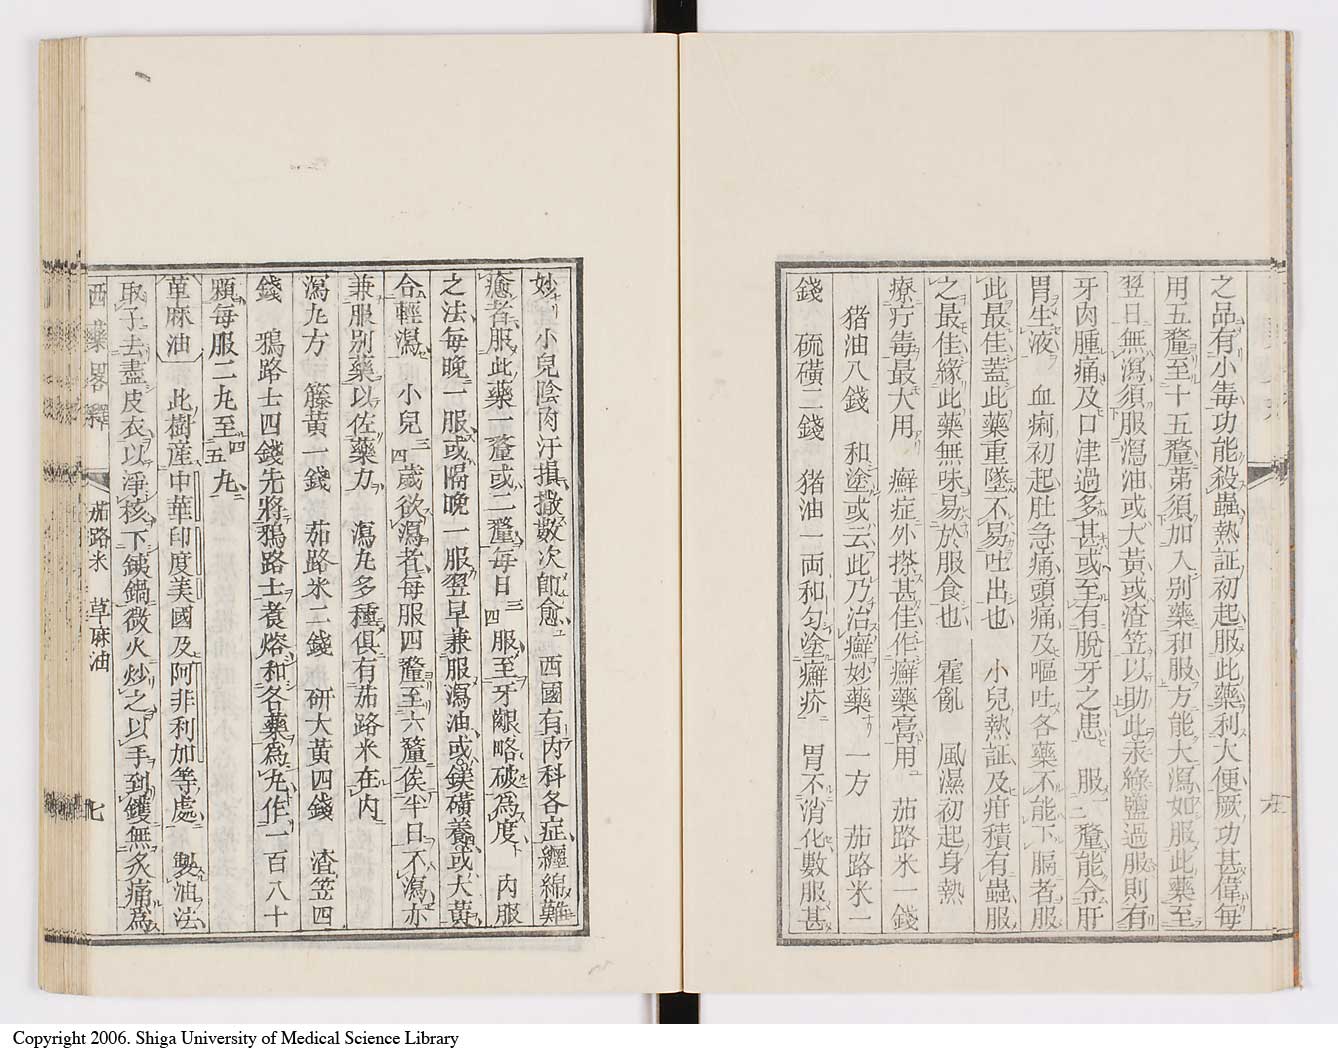 之品有小毒功能殺蟲熱証初起服此藥利大便厥功甚偉每
用五釐至十五釐第須加入別藥和服方能大瀉如服此藥至
翌日無瀉須服瀉油或大黃或渣笠以助此汞綠鹽過服則有
牙肉腫痛及口津過多甚或至有脫牙之患　服一二釐能令肝
胃生液　血痢初起肚急痛頭痛及嘔吐各藥不能下膈者服
此最佳蓋此藥重墜不易吐出也　小兒熱証及疳積有蟲服
之最佳緣此藥無味易於服食也　霍亂　風濕初起身熱
療疔毒最大用　癬症外搽甚佳作癬藥膏用　茄路米一錢
猪油八錢　和塗或云此乃治癬妙藥　一方　茄路米二
錢　硫磺二錢　猪油一両和勻塗癬疥　胃不消化數服甚
妙　小兒陰肉汙損撒數次卽愈　西國有內科各症纏綿難
癒者服此藥一釐或二釐每日三四服至牙齦略破爲度　內服
之法每晚一服或隔晚一服翌早兼服瀉油或鎂磺養或大黃
合輕瀉　小兒三四歲欲瀉者每服四釐至六釐俟半日不瀉亦
兼服別藥以佐藥力　瀉丸多種俱有茄路米在內
瀉丸方　籐黃一錢　茄路米二錢　研大黃四錢　渣笠四
錢　鴉路士四錢先將鴉路士煑熔和各藥爲丸作一百八十
顆每服二丸至四五丸
萆麻油　此樹産中華印度美國及阿非利加等處　製油法
取子去盡皮衣以淨核下鐵鍋微火炒之以手到鑊無炙痛爲
西藥畧釋　茄路米　萆麻油　七